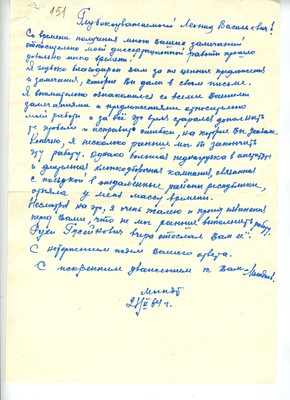 151
Глубокоуважаемый Леонид Васильевич!
Со времени получения мною Ваших замечаний
относительно моей диссертационной работы прошло
довольно много времени.
Я глубоко благодарен Вам за те ценные предложения
и замечания, которые Вы дали в своём письме.
Я внимательно ознакомился со всеми Вашими
замечаниями и предложениями относительно
моей работы и за всё это время старался дополнить
те пробелы и исправить ошибки, на которые Вы указали.
Конечно, я несколько раньше мог бы закончить
эту работу. Однако большая поднагрузка в институте
и длительная хлопкоуборочная кампания, связанная
с поездкой в отдалённые районы республики,
отняла у меня массу времени.
Несмотря на это, я очень жалею и прошу извинения
перед Вами, что не мог раньше выполнить работу.
вчера отослал Вам её.
С нетерпением ждём Вашего ответа.
С искренним уважением к Вам
64 г.